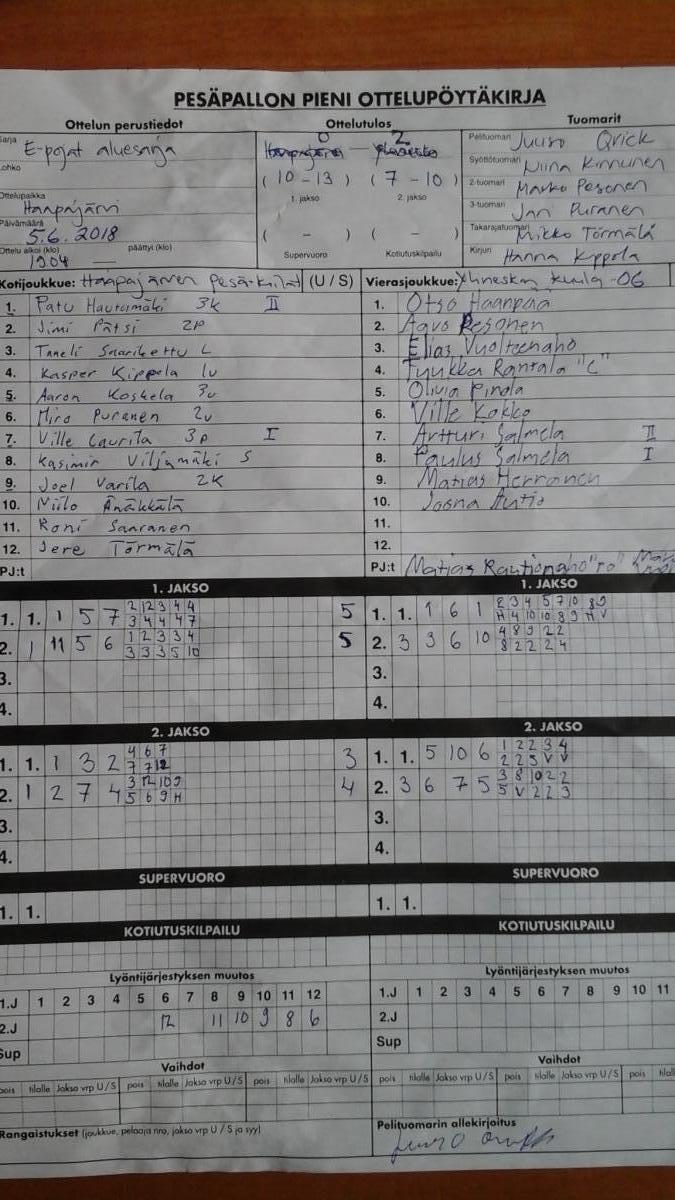 PESÄPALLON PIENI OTTELUPÖYTÄKIRJA
Ottelun perustiedot
Ottelutulos
Tuomarit
Sarja E-pojat aluesarja
Lohko
Ottelupaikka Haapajärvi
Päivämäärä 5.6.2018
Ottelu alkoi (klo) päättyi (klo)
0 – 2
( 10 – 13 ) ( 7 – 10 )
1. jakso 2. jakso
( – ) ( – )
Supervuoro Kotiutuskilpailu
Pelituomari Juuso Qvick
Syöttötuomari Niina Kinnunen
2-tuomari Marko Pesonen
3-tuomari Jari Puranen
Takarajatuomari Mikko Törmälä
Kirjuri Hanna Kippola
Kotijoukkue: Haapajärven Pesä-Kiilat (U / S)
1. Patu Hautamäki 3K II
2. Jimi Pätsi 2P
3. Taneli Saarikettu L
4. Kasper Kippola 1v
5. Aaron Koskela 3v
6. Miro Puranen 2v
7. Ville Laurila 3p I
8. Kasimir Viljamäki S
9. Joel Varila 2K
10. Niilo Änäkkälä
11. Roni Saaranen
12. Jere Törmälä
PJ:t
Vierasjoukkue: kuula -06
1. Otso Haanpää
2. Aavo Pesonen
3. Elias Vuolteenaho
4. Tyukka Rantala "C"
5. Olivia Pinola
6. Ville Kokko
7. Artturi Salmela II
8. Paulus Salmela I
9. Matias Herranen
10. Joona Autio
11.
12.
PJ:t Matias Rautionaho "ro"
1. JAKSO
1. 1. 1 5 7 2 2 3 4 4 5
3 4 4 4 7
2. 1 11 5 6 1 2 3 3 4 5
3 3 3 5 10
3.
4.
1. JAKSO
1. 1. 1 6 1 2 3 4 5 7 10 8 9
H 4 10 10 8 9 H V
2. 3 3 6 10 4 8 9 2 2
8 2 2 2 4
3.
4.
2. JAKSO
1. 1. 1 3 2 4 6 7 3
7 7 12
2. 1 2 7 4 3 12 10 9 4
5 6 9 H
3.
4.
2. JAKSO
1. 1. 5 10 6 1 2 2 3 4
2 2 5 V V
2. 3 6 7 5 3 8 10 2 2
5 V 2 2 3
3.
4.
SUPERVUORO
1. 1.
SUPERVUORO
1. 1.
KOTIUTUSKILPAILU
KOTIUTUSKILPAILU
Lyöntijärjestyksen muutos
1.J 1 2 3 4 5 6 7 8 9 10 11 12
2.J 12 11 10 9 8 6
Sup
Lyöntijärjestyksen muutos
1.J 1 2 3 4 5 6 7 8 9 10 11
2.J
Sup
Vaihdot
pois tilalle Jakso vrp U / S pois tilalle Jakso vrp U / S pois tilalle Jakso vrp U / S
Vaihdot
pois tilalle Jakso vrp U / S pois tilalle Jakso vrp U / S pois
Rangaistukset (joukkue, pelaaja nro, jakso vrp U / S ja syy)
Pelituomarin allekirjoitus